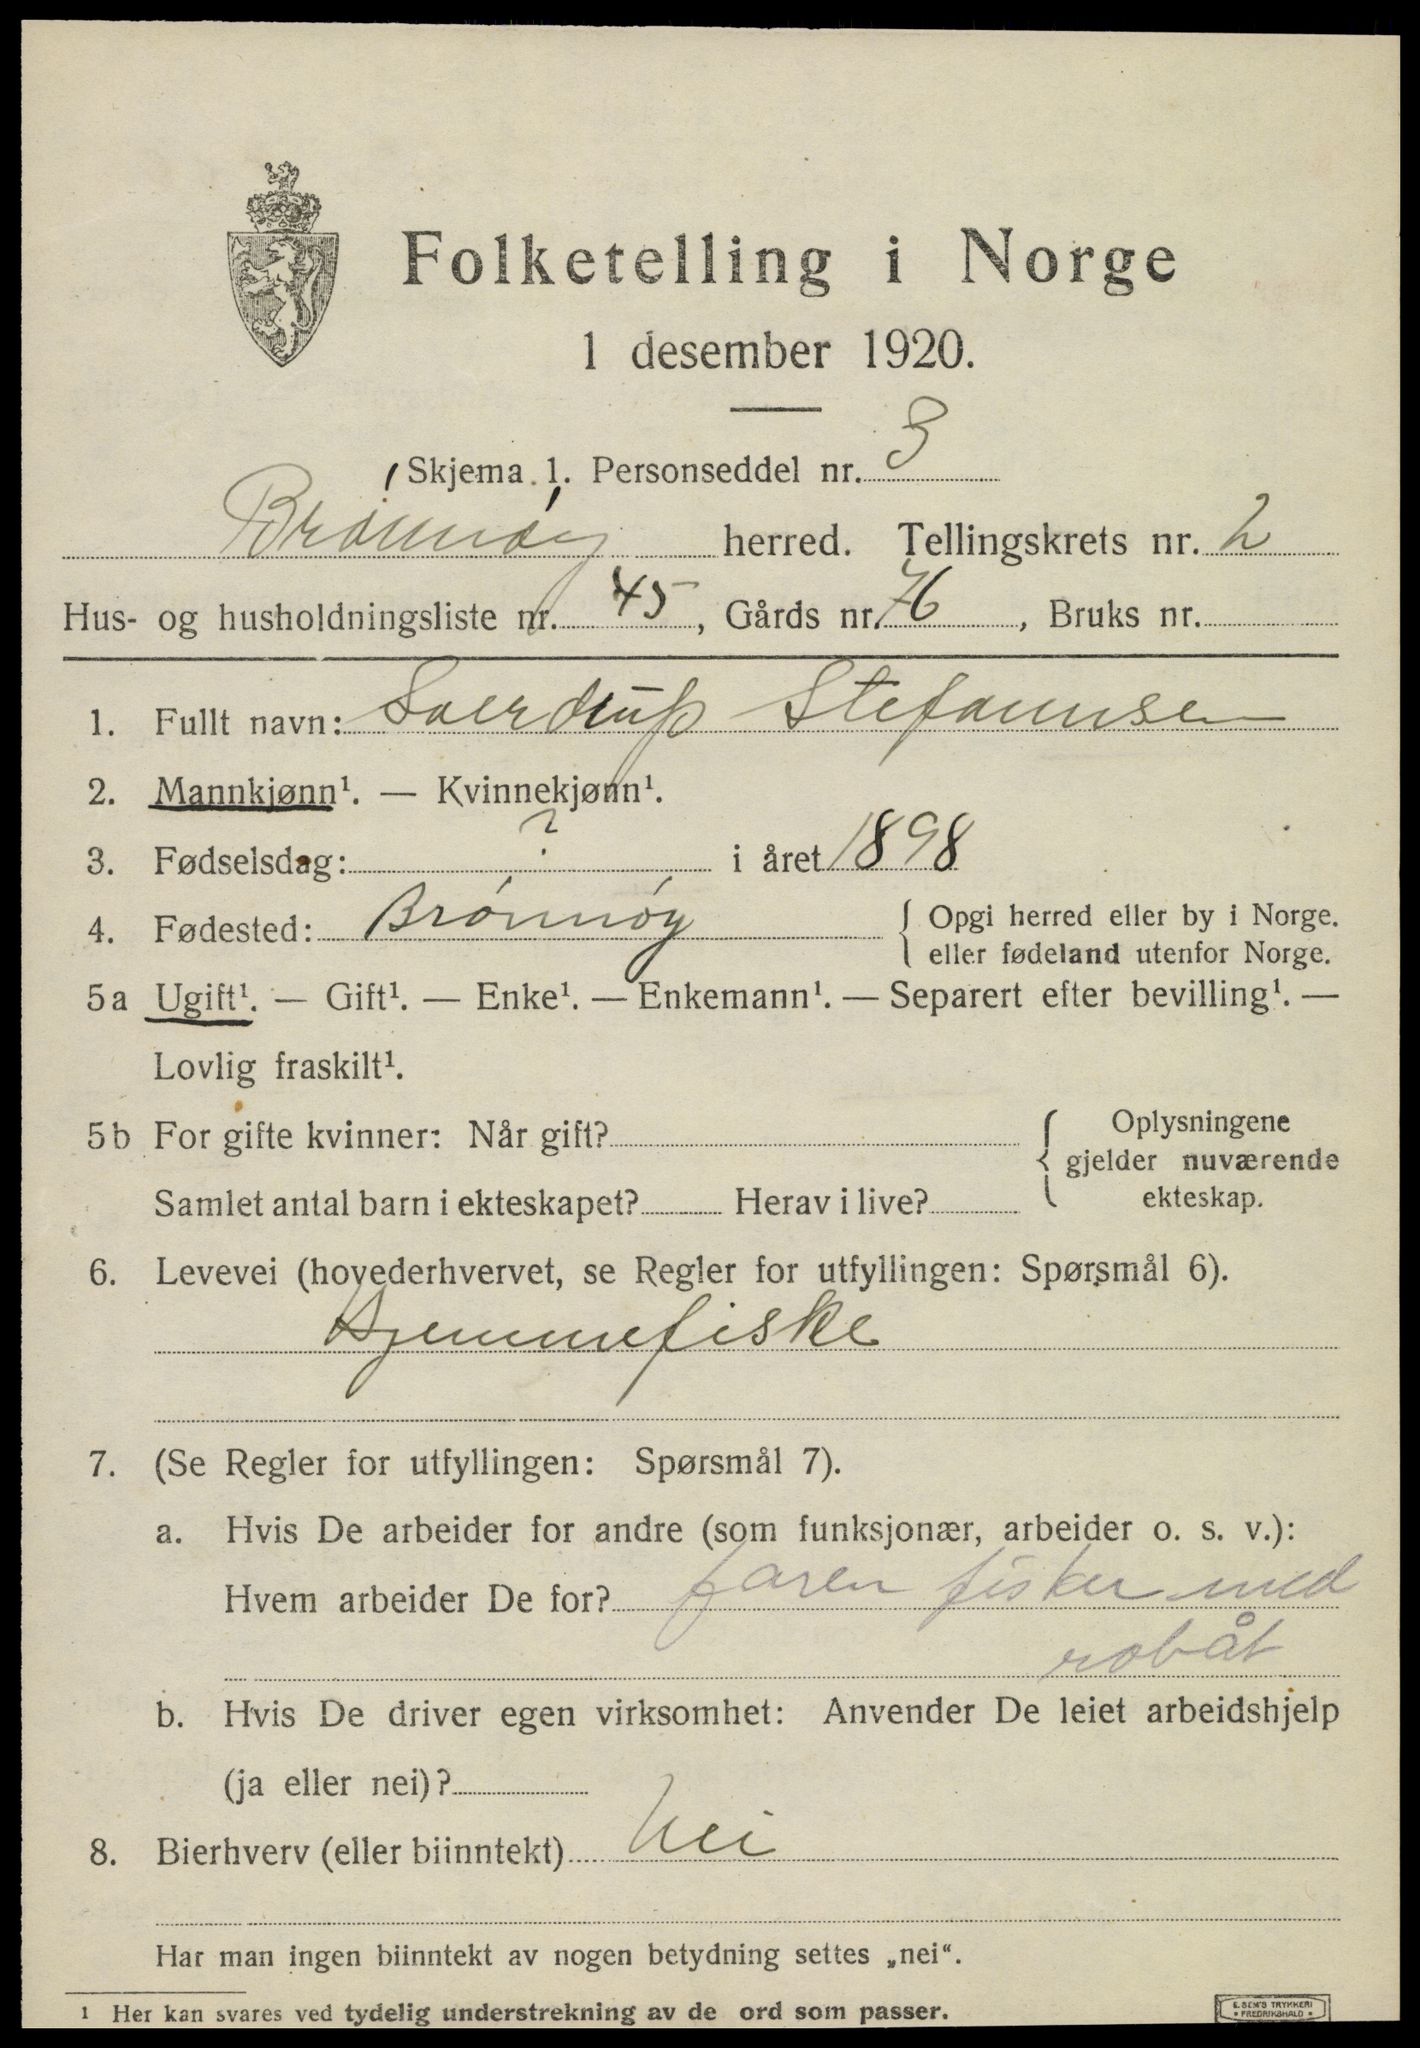 Folketelling i Norge
1 desember 1920.
Skjema 1. Personseddel nr. 3
Brønnøy herred. Tellingskrets nr. 2
Hus- og husholdningsliste nr. 45, Gårds nr. 76, Bruks nr.
1. Fullt navn: Sverdrup Stefannsen
2. Mannkjønn¹. — Kvinnekjønn¹.
3. Fødselsdag: ? i året 1898
4. Fødested: Brønnøy { Opgi herred eller by i Norge.
eller fødeland utenfor Norge.
5a Ugift¹. — Gift¹. — Enke¹. — Enkemann¹. — Separert efter bevilling¹. —
Lovlig fraskilt¹.
5b For gifte kvinner: Når gift?
Samlet antal barn i ekteskapet? Herav i live?
{ Oplysningene
gjelder nuværende
ekteskap.
6. Levevei (hovederhvervet, se Regler for utfyllingen: Spørsmål 6).
Hjemmefiske
7. (Se Regler for utfyllingen: Spørsmål 7).
a. Hvis De arbeider for andre (som funksjonær, arbeider o. s. v.):
Hvem arbeider De for? faren fisker med
robåt
b. Hvis De driver egen virksomhet: Anvender De leiet arbeidshjelp
(ja eller nei)?
8. Bierhverv (eller biinntekt) Nei
Har man ingen biinntekt av nogen betydning settes „nei“.
¹ Her kan svares ved tydelig understrekning av de ord som passer.
E. SEM'S TRYKKERI
• FREDRIKSHALD •